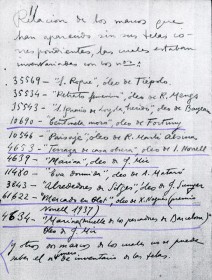 Relacion de los marcos que
han aparecido sin sus telas co-
rrespondientes, las cuales estaban
inventariadas con los nos:
35549 - "S. Roque", óleo de Tiépolo
35534 - "Retrato femenino", óleo de R. Mengs
35543 - óleo de Bayeu
10690 - "Centinela mora", óleo de Fortuny
10546 - "Paisaje", óleo de R. Martí Alsina
4653 - "Terraza de casa obrera", óleo de J. Nonell
4639 - "Marina", óleo de J. Mir
11480 - "Eva dormida", óleo de A.
3643 - "Alrededores de Sitges", óleo de J. Sunyer
61622 - "Mercado en Olot", óleo de X. Nogués (premio
Nonell 1937)
4634 - "Marina de los pescadores de Barcelona",
óleo de J. Mir
Y otros dos marcos de los cuales no se puede
saber el nº de inventario de las telas.